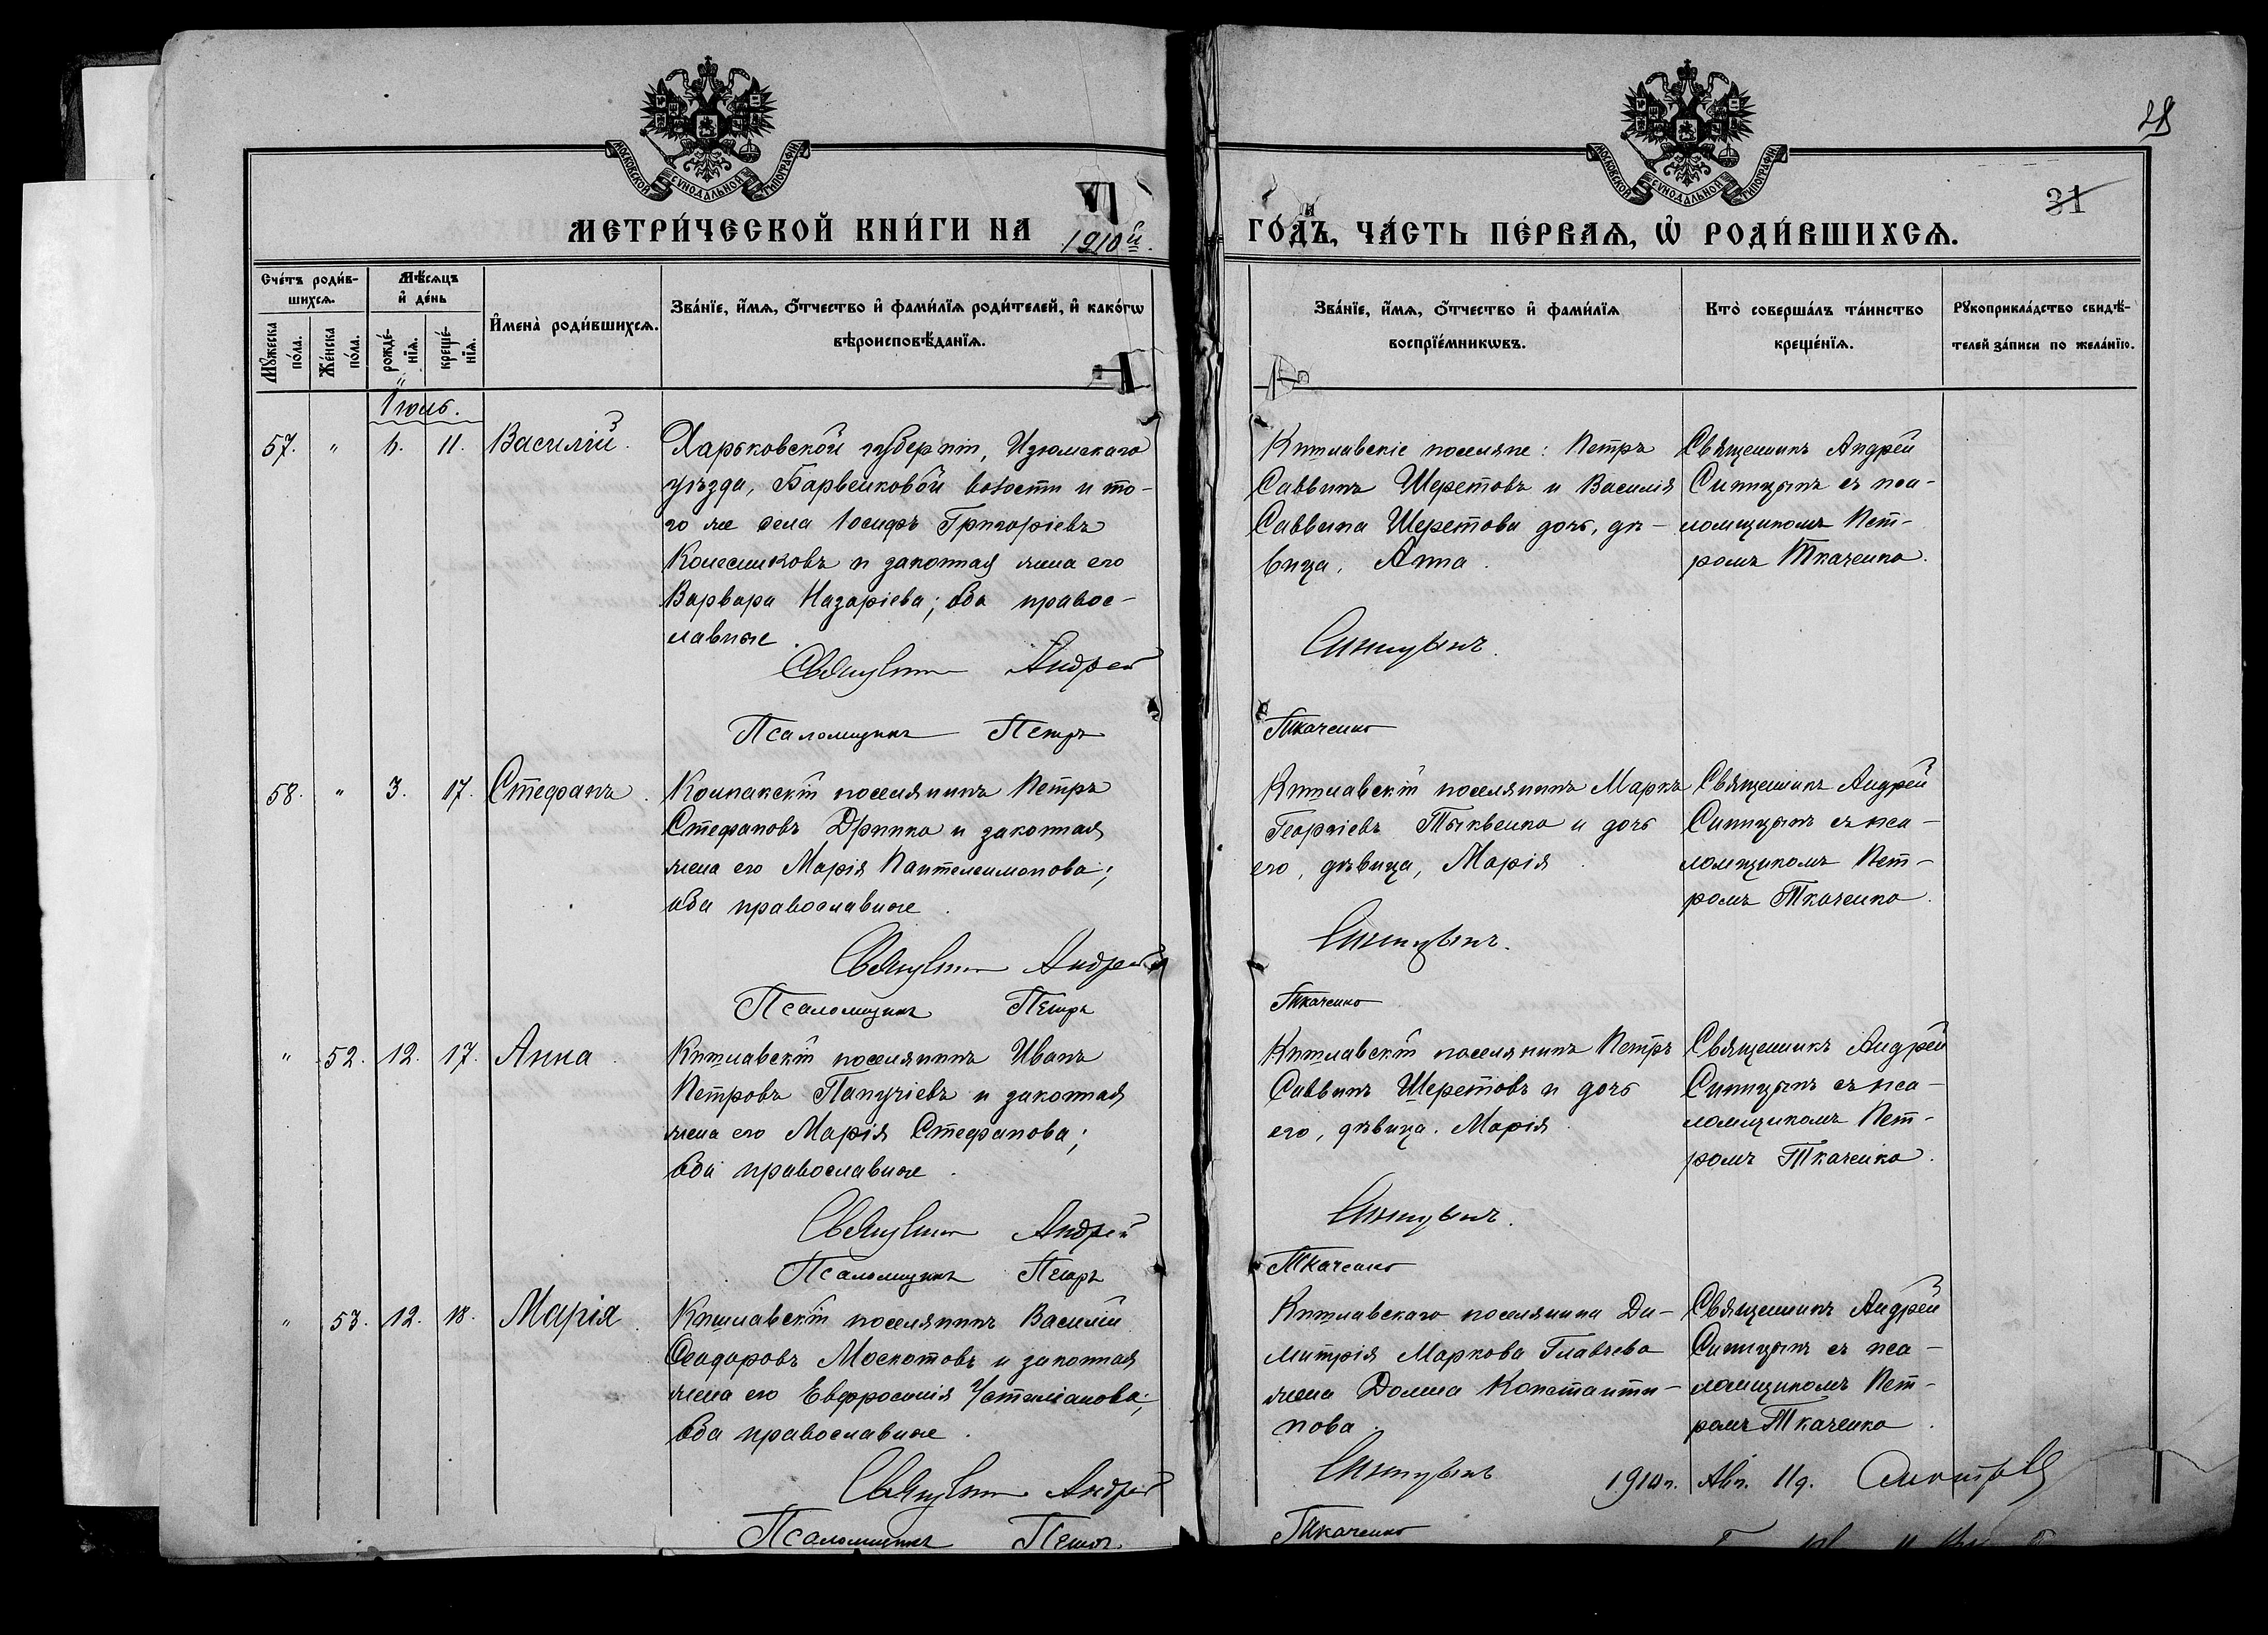 28
31
МОСКОВСКОЙ СѴНОДАЛЬНОЙ ТИПОГРАФІИ
МОСКОВСКОЙ СѴНОДАЛЬНОЙ ТИПОГРАФІИ
МЕТРИ́ЧЕСКОЙ КНИ́ГИ НА 1910й.
ГО́ДЪ, ЧА́СТЬ ПЕ́РВАЯ, Ѡ РОДИ́ВШИХСЯ.
Сче́тъ роди́в-
шихся.
Мꙋ́жеска по́ла.
Же́нска по́ла.
Мѣ́сяцъ
и҆ де́нь
рожде́-
нїя.
креще́-
нїя.
И҆мена̀ роди́вшихся.
Зва́нїе, и҆́мя, ѻ҆́тчество и҆ фами́лїя роди́телей, и҆ како́гѡ
вѣроисповѣ́данїя.
Зва́нїе, и҆́мя, ѻ҆́тчество и҆ фами́лїя
воспрїе́мникѡвъ.
Кто̀ соверша́лъ та́инство
креще́нїя.
Рꙋкоприкла́дство свидѣ́-
телей за́писи по жела́нїю.
Іюнь.
57. " 11. Василій.
Харьковской губерніи, Изюмскаго
уѣзда, Барвенковой волости и то-
го же села Іосифъ Григоріевъ
Колесниковъ и законная жена его
Варвара Назаріева; оба правос-
лавные
Священникъ Андрей
Псаломщикъ Петръ
Кишлавскіе поселяне: Петръ
Саввинъ Шеретовъ и Василія
Саввина Шеретова дочь, дѣ-
вица, Анна.
Синицынъ.
Ткаченко
Священникъ Андрей
Синицынъ съ пса-
ломщикомъ Пет-
ромъ Ткаченко.
58. " 3. 17. Стефанъ.
поселянинъ Петръ
Стефановъ и законная
жена его Марія Пантелеимонова;
оба православные.
Священникъ Андрей
Псаломщикъ Петръ
Кишлавскій поселянинъ Маркъ
Георгіевъ и дочь
его, дѣвица, Марія.
Синицынъ.
Ткаченко
Священникъ Андрей
Синицынъ съ пса-
ломщикомъ Пет-
ромъ Ткаченко.
" 52. 12. 17. Анна.
Кишлавскій поселянинъ Иванъ
Петровъ Папучіевъ и законная
жена его Марія Стефанова;
оба православные.
Священникъ Андрей
Псаломщикъ Петръ
Кишлавскій поселянинъ Петръ
Саввинъ Шеретовъ и дочь
его, дѣвица, Марія.
Синицынъ.
Ткаченко
Священникъ Андрей
Синицынъ съ пса-
ломщикомъ Пет-
ромъ Ткаченко.
" 53. 12. 18. Марія
Кишлавскій поселянинъ Василій
Ѳеодоровъ Москотовъ и законная
жена его Евфросинія
оба православные.
Священникъ Андрей
Псаломщикъ Петръ
Кишлавскаго поселянина Ди-
митрія Маркова Главчева
жена Домна Константи-
нова.
Синицынъ
Ткаченко
Священникъ Андрей
Синицынъ съ пса-
ломщикомъ Пет-
ромъ Ткаченко.
1910 г. Авг. 11 д.